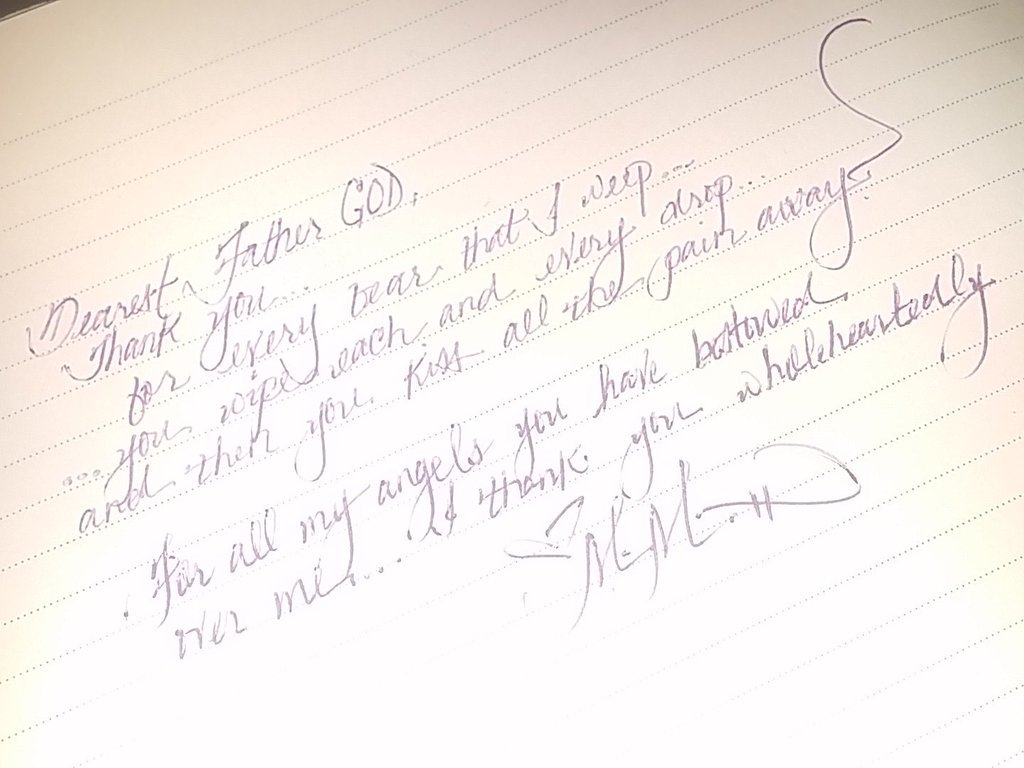 Dearest Father GOD,
Thank you...
for every tear that I weep...
...you wipe each and every drop...
and then you kiss all the pain away.
For all my angels you have bestowed
over me.... I thank you wholeheartedly